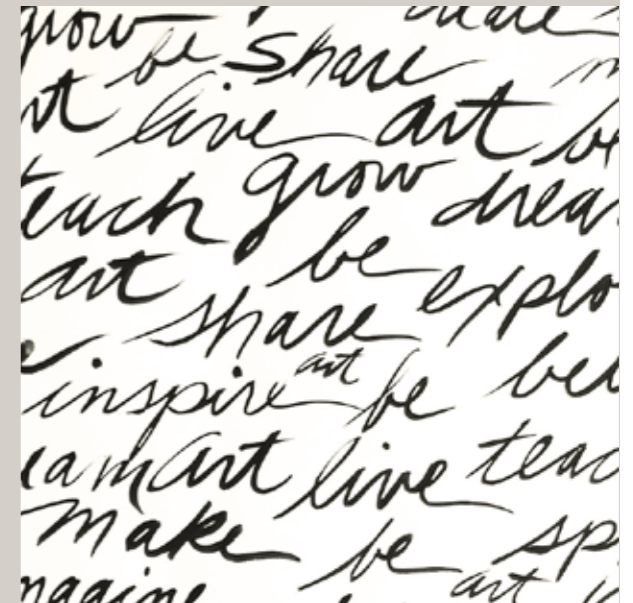 grow be share make
art live art be
teach grow drea
art be explo
share
inspire art be bel
eam art live teac
make be sp
magine art